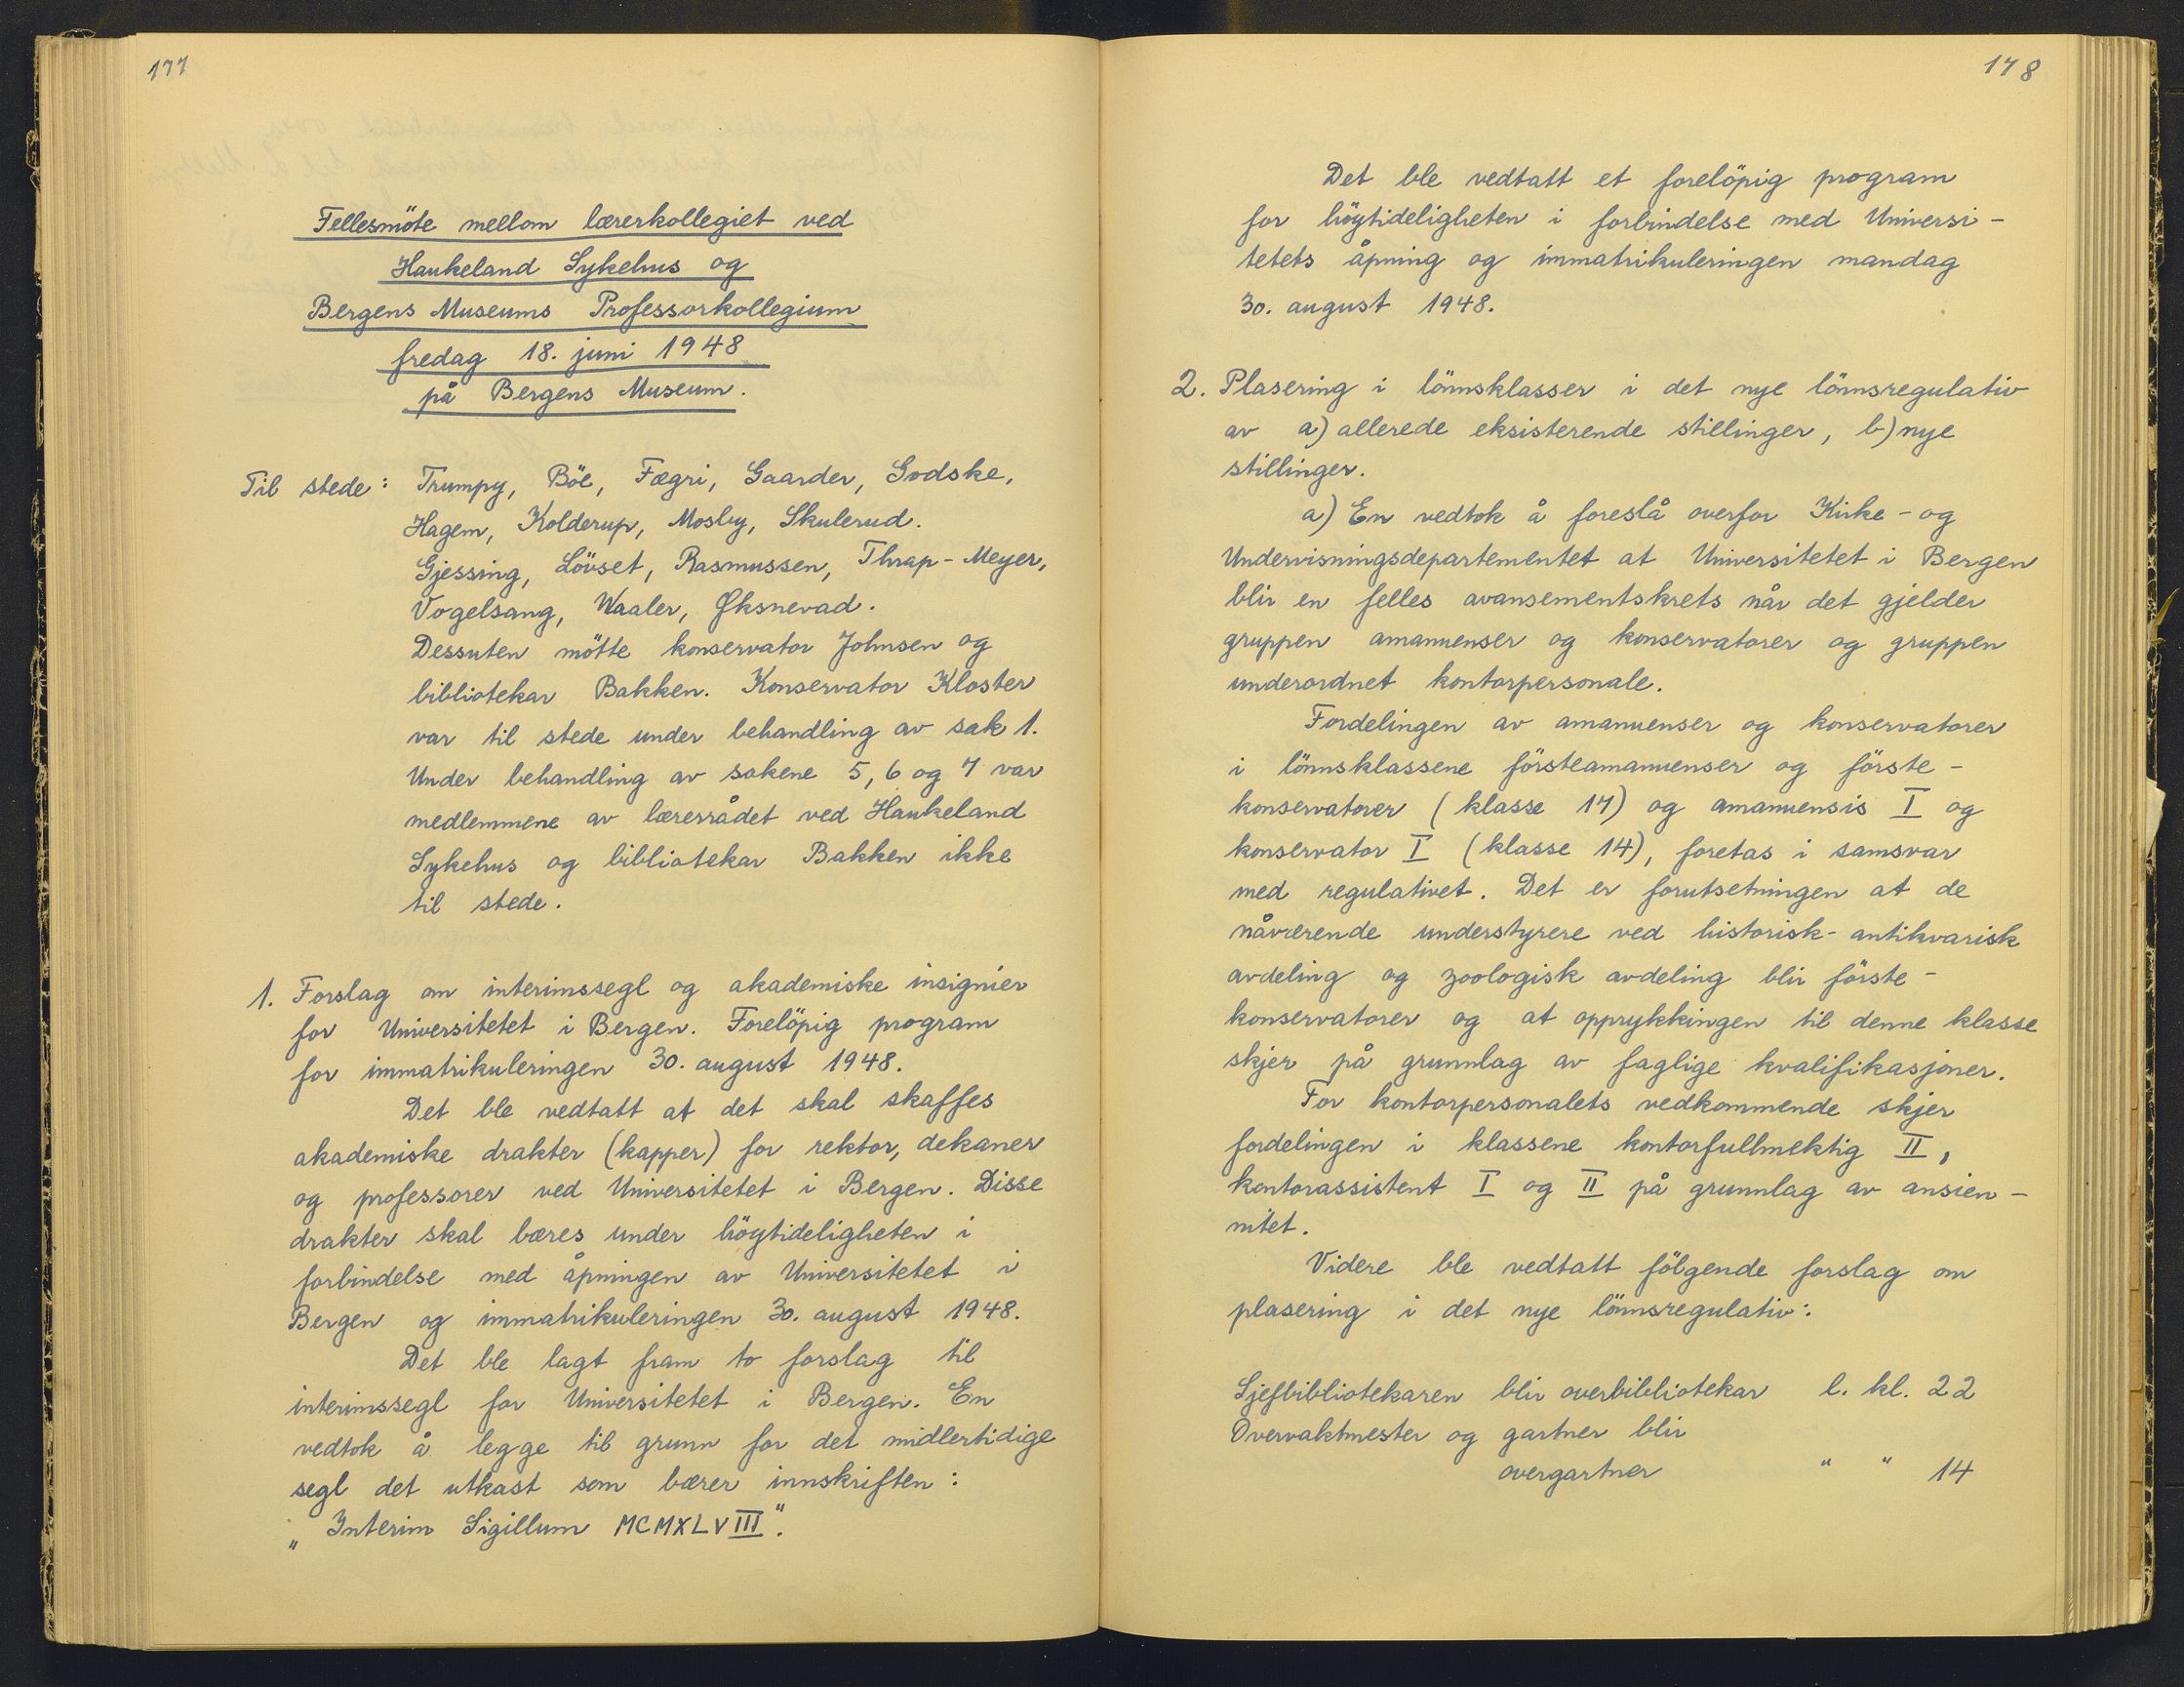 177
Fellesmöte mellom lærerkollegiet ved
Haukeland Sykehus og
Bergens Museums Professorkollegium
fredag 18. juni 1948
på Bergens Museum.
Til stede: Trumpy, Böe, Fægri, Gaarder, Godske,
Hagem, Kolderup, Mosby, Skulerud.
Gjessing, Lövset, Rasmussen, Thrap-Meyer,
Vogelsang, Waaler, Øksnevad.
Dessuten mötte konservator Johnsen og
bibliotekar Bakken. Konservator Kloster
var til stede under behandling av sak 1.
Under behandling av sakene 5, 6 og 7 var
medlemmene av lærerrådet ved Haukeland
Sykehus og bibliotekar Bakken ikke
til stede.
1. Forslag om interimssegl og akademiske insignier
for Universitetet i Bergen. Forelöpig program
for immatrikuleringen 30. august 1948.
Det ble vedtatt at det skal skaffes
akademiske drakter (kapper) for rektor, dekaner
og professorer ved Universitetet i Bergen. Disse
drakter skal bæres under höytideligheten i
forbindelse med åpningen av Universitetet i
Bergen og immatrikuleringen 30. august 1948.
Det ble lagt fram to forslag til
interimssegl for Universitetet i Bergen. En
vedtok å legge til grunn for det midlertidige
segl det utkast som bærer innskriften:
„Interim Sigillum MCMXLVIII".
178
Det ble vedtatt et forelöpig program
for höytideligheten i forbindelse med Universi-
tetets åpning og immatrikuleringen mandag
30. august 1948.
2. Plasering i lönnsklasser i det nye lönnsregulativ
av a) allerede eksisterende stillinger, b) nye
stillinger.
a) En vedtok å foreslå overfor Kirke- og
Undervisningsdepartementet at Universitetet i Bergen
blir en felles avansementskrets når det gjelder
gruppen amanuenser og konservatorer og gruppen
underordnet kontorpersonale.
Fordelingen av amanuenser og konservatorer
i lönnsklassene försteamanuenser og förste-
konservatorer (klasse 17) og amanuensis I og
konservator I (klasse 14), foretas i samsvar
med regulativet. Det er forutsetningen at de
nåværende understyrere ved historisk-antikvarisk
avdeling og zoologisk avdeling blir förste-
konservatorer og at opprykkingen til denne klasse
skjer på grunnlag av faglige kvalifikasjoner.
For kontorpersonalets vedkommende skjer
fordelingen i klassene kontorfullmektig II,
kontorassistent I og II på grunnlag av ansien-
nitet.
Videre ble vedtatt fölgende forslag om
plasering i det nye lönnsregulativ:
Sjefbibliotekaren blir overbibliotekar l. kl. 22
Overvaktmester og gartner blir
overgartner " " 14